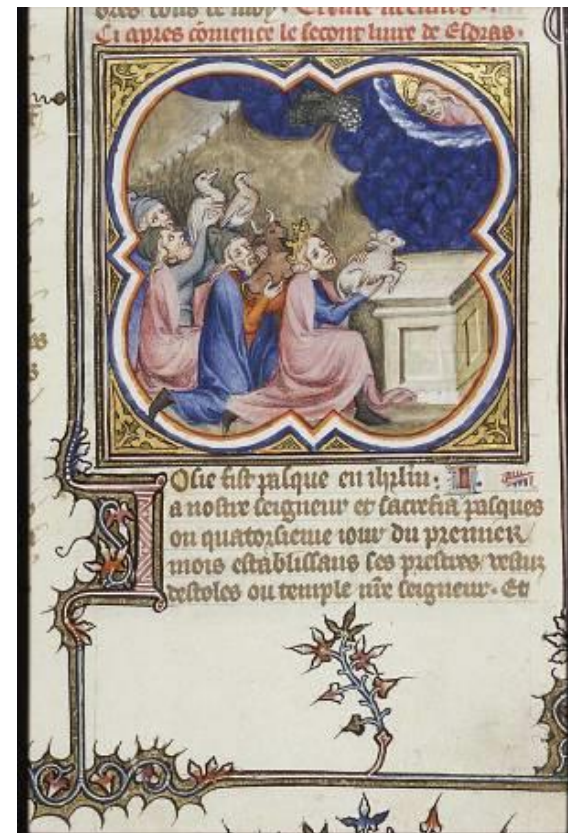 Ci apres cōmence le second liure de Esdras.
Iosie fist pasque en ihrlm̄. I.
a nostre seigneur et sacrefia pasques
ou quatorsieme iour du premier
mois establissans ses prestres vestuz
destoles ou temple nr̄e seigneur. Et